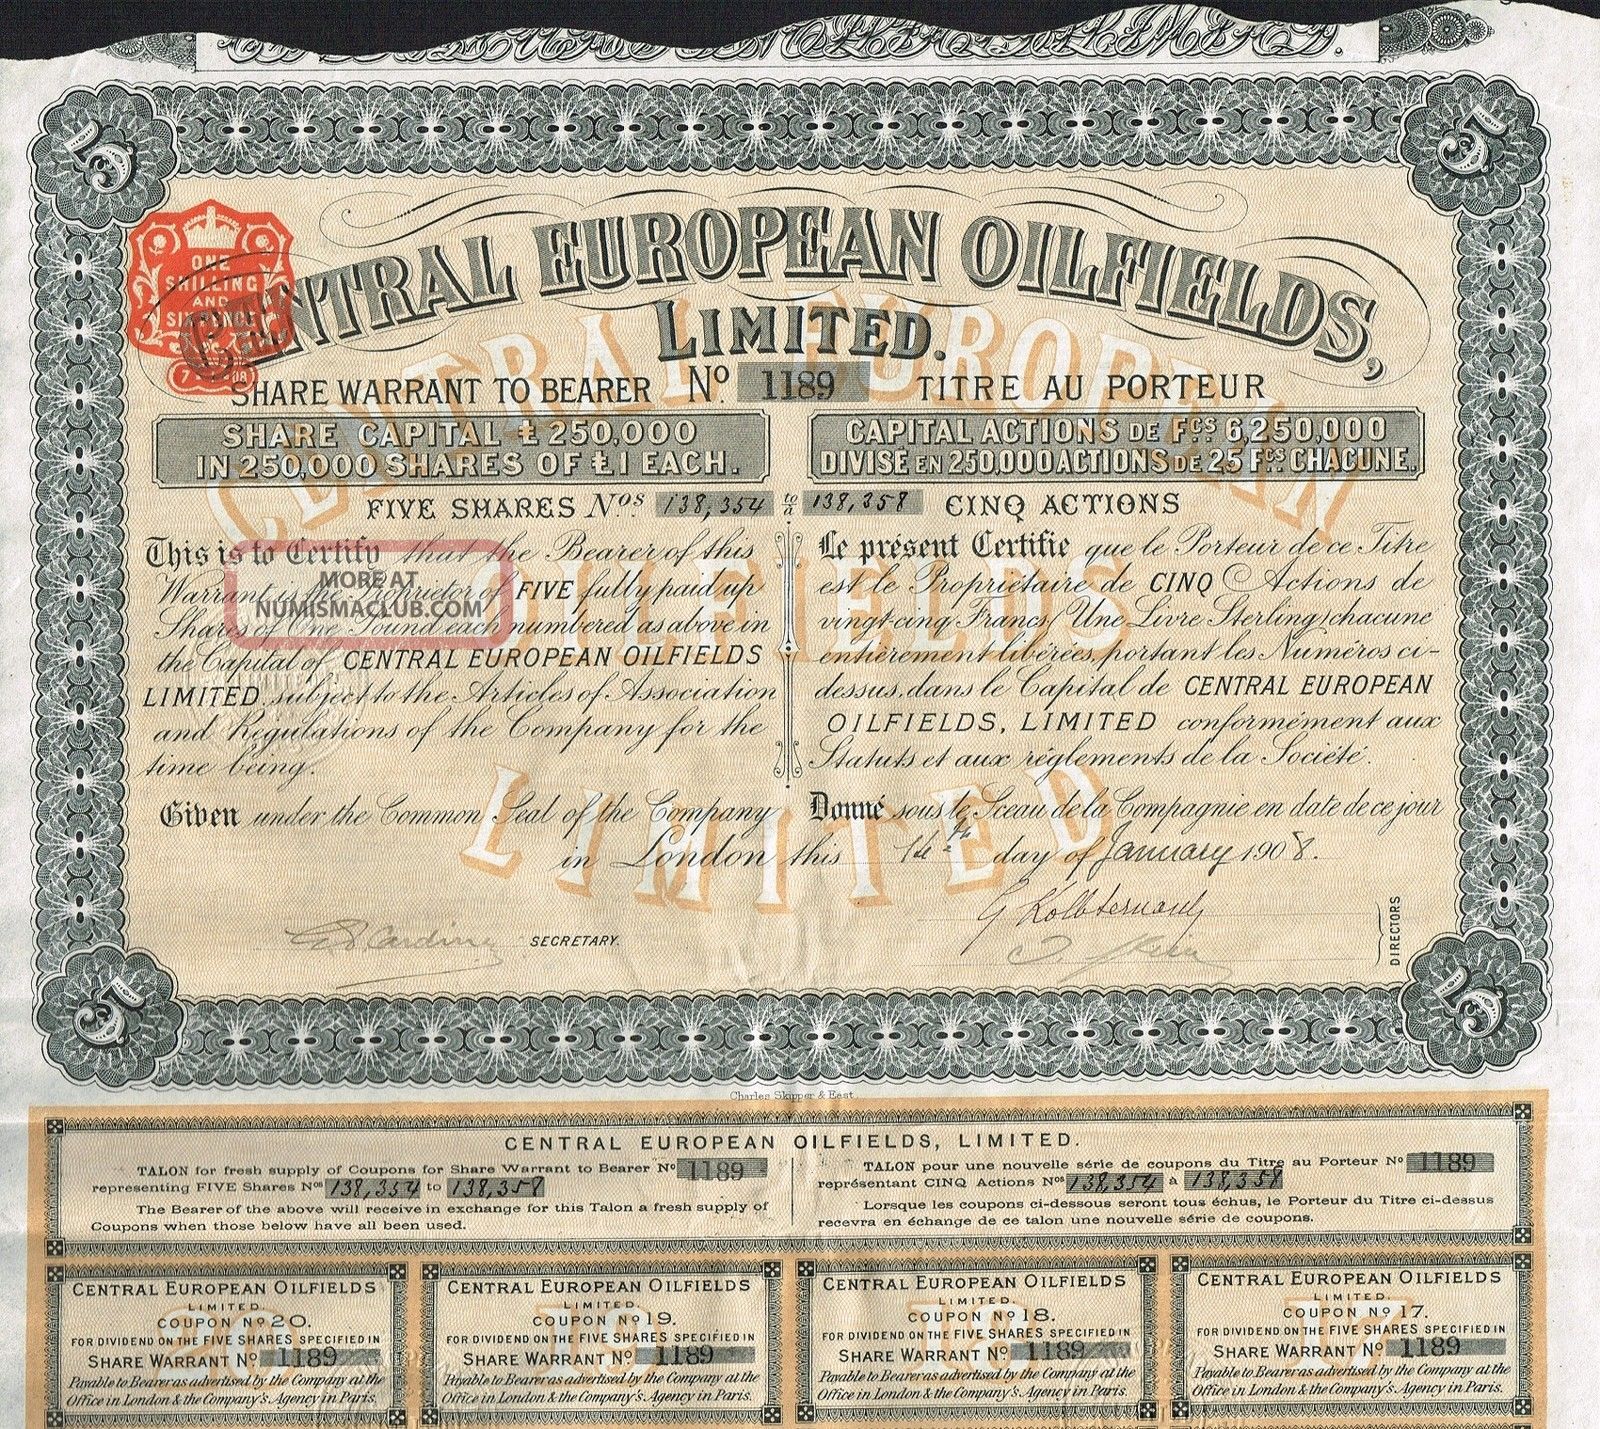 5 5
ONE
SHILLING
AND
SIXPENCE
CENTRAL EUROPEAN OILFIELDS,
LIMITED.
SHARE WARRANT TO BEARER No. 1189 TITRE AU PORTEUR
SHARE CAPITAL £250,000
IN 250,000 SHARES OF £1 EACH.
CAPITAL ACTIONS DE FCS 6,250,000
DIVISÉ EN 250,000 ACTIONS DE 25 FCS CHACUNE.
FIVE SHARES Nos. 138,354 to/à 138,358 CINQ ACTIONS
This is to Certify that the Bearer of this
Warrant is the Proprietor of FIVE fully paid up
Shares of One Pound each numbered as above in
the Capital of CENTRAL EUROPEAN OILFIELDS
LIMITED, subject to the Articles of Association
and Regulations of the Company for the
time being.
Le présent Certifie que le Porteur de ce Titre
est le Propriétaire de CINQ Actions de
vingt-cinq Francs (Une Livre Sterling) chacune
entièrement libérées, portant les Numéros ci-
dessus, dans le Capital de CENTRAL EUROPEAN
OILFIELDS, LIMITED conformément aux
Statuts et aux règlements de la Société.
MORE AT
NUMISMACLUB.COM
CENTRAL EUROPEAN
OILFIELDS
LIMITED
Given under the Common Seal of the Company Donné sous le Sceau de la Compagnie en date de ce jour
in London this 14th day of January 1908.
SECRETARY.
DIRECTORS
5 5
Charles Skipper & East
CENTRAL EUROPEAN OILFIELDS, LIMITED.
TALON for fresh supply of Coupons for Share Warrant to Bearer No 1189
representing FIVE Shares Nos 138,354 to 138,358
The Bearer of the above will receive in exchange for this Talon a fresh supply of
Coupons when those below have all been used.
TALON pour une nouvelle série de coupons du Titre au Porteur No 1189
représentant CINQ Actions Nos 138,354 à 138,358
Lorsque les coupons ci-dessous seront tous échus, le Porteur du Titre ci-dessus
recevra en échange de ce talon une nouvelle série de coupons.
CENTRAL EUROPEAN OILFIELDS
LIMITED.
COUPON No 20.
FOR DIVIDEND ON THE FIVE SHARES SPECIFIED IN
SHARE WARRANT No 1189
Payable to Bearer as advertised by the Company at the
Office in London & the Company's Agency in Paris.
CENTRAL EUROPEAN OILFIELDS
LIMITED.
COUPON No 19.
FOR DIVIDEND ON THE FIVE SHARES SPECIFIED IN
SHARE WARRANT No 1189
Payable to Bearer as advertised by the Company at the
Office in London & the Company's Agency in Paris.
CENTRAL EUROPEAN OILFIELDS
LIMITED.
COUPON No 18.
FOR DIVIDEND ON THE FIVE SHARES SPECIFIED IN
SHARE WARRANT No 1189
Payable to Bearer as advertised by the Company at the
Office in London & the Company's Agency in Paris.
CENTRAL EUROPEAN OILFIELDS
LIMITED.
COUPON No 17.
FOR DIVIDEND ON THE FIVE SHARES SPECIFIED IN
SHARE WARRANT No 1189
Payable to Bearer as advertised by the Company at the
Office in London & the Company's Agency in Paris.